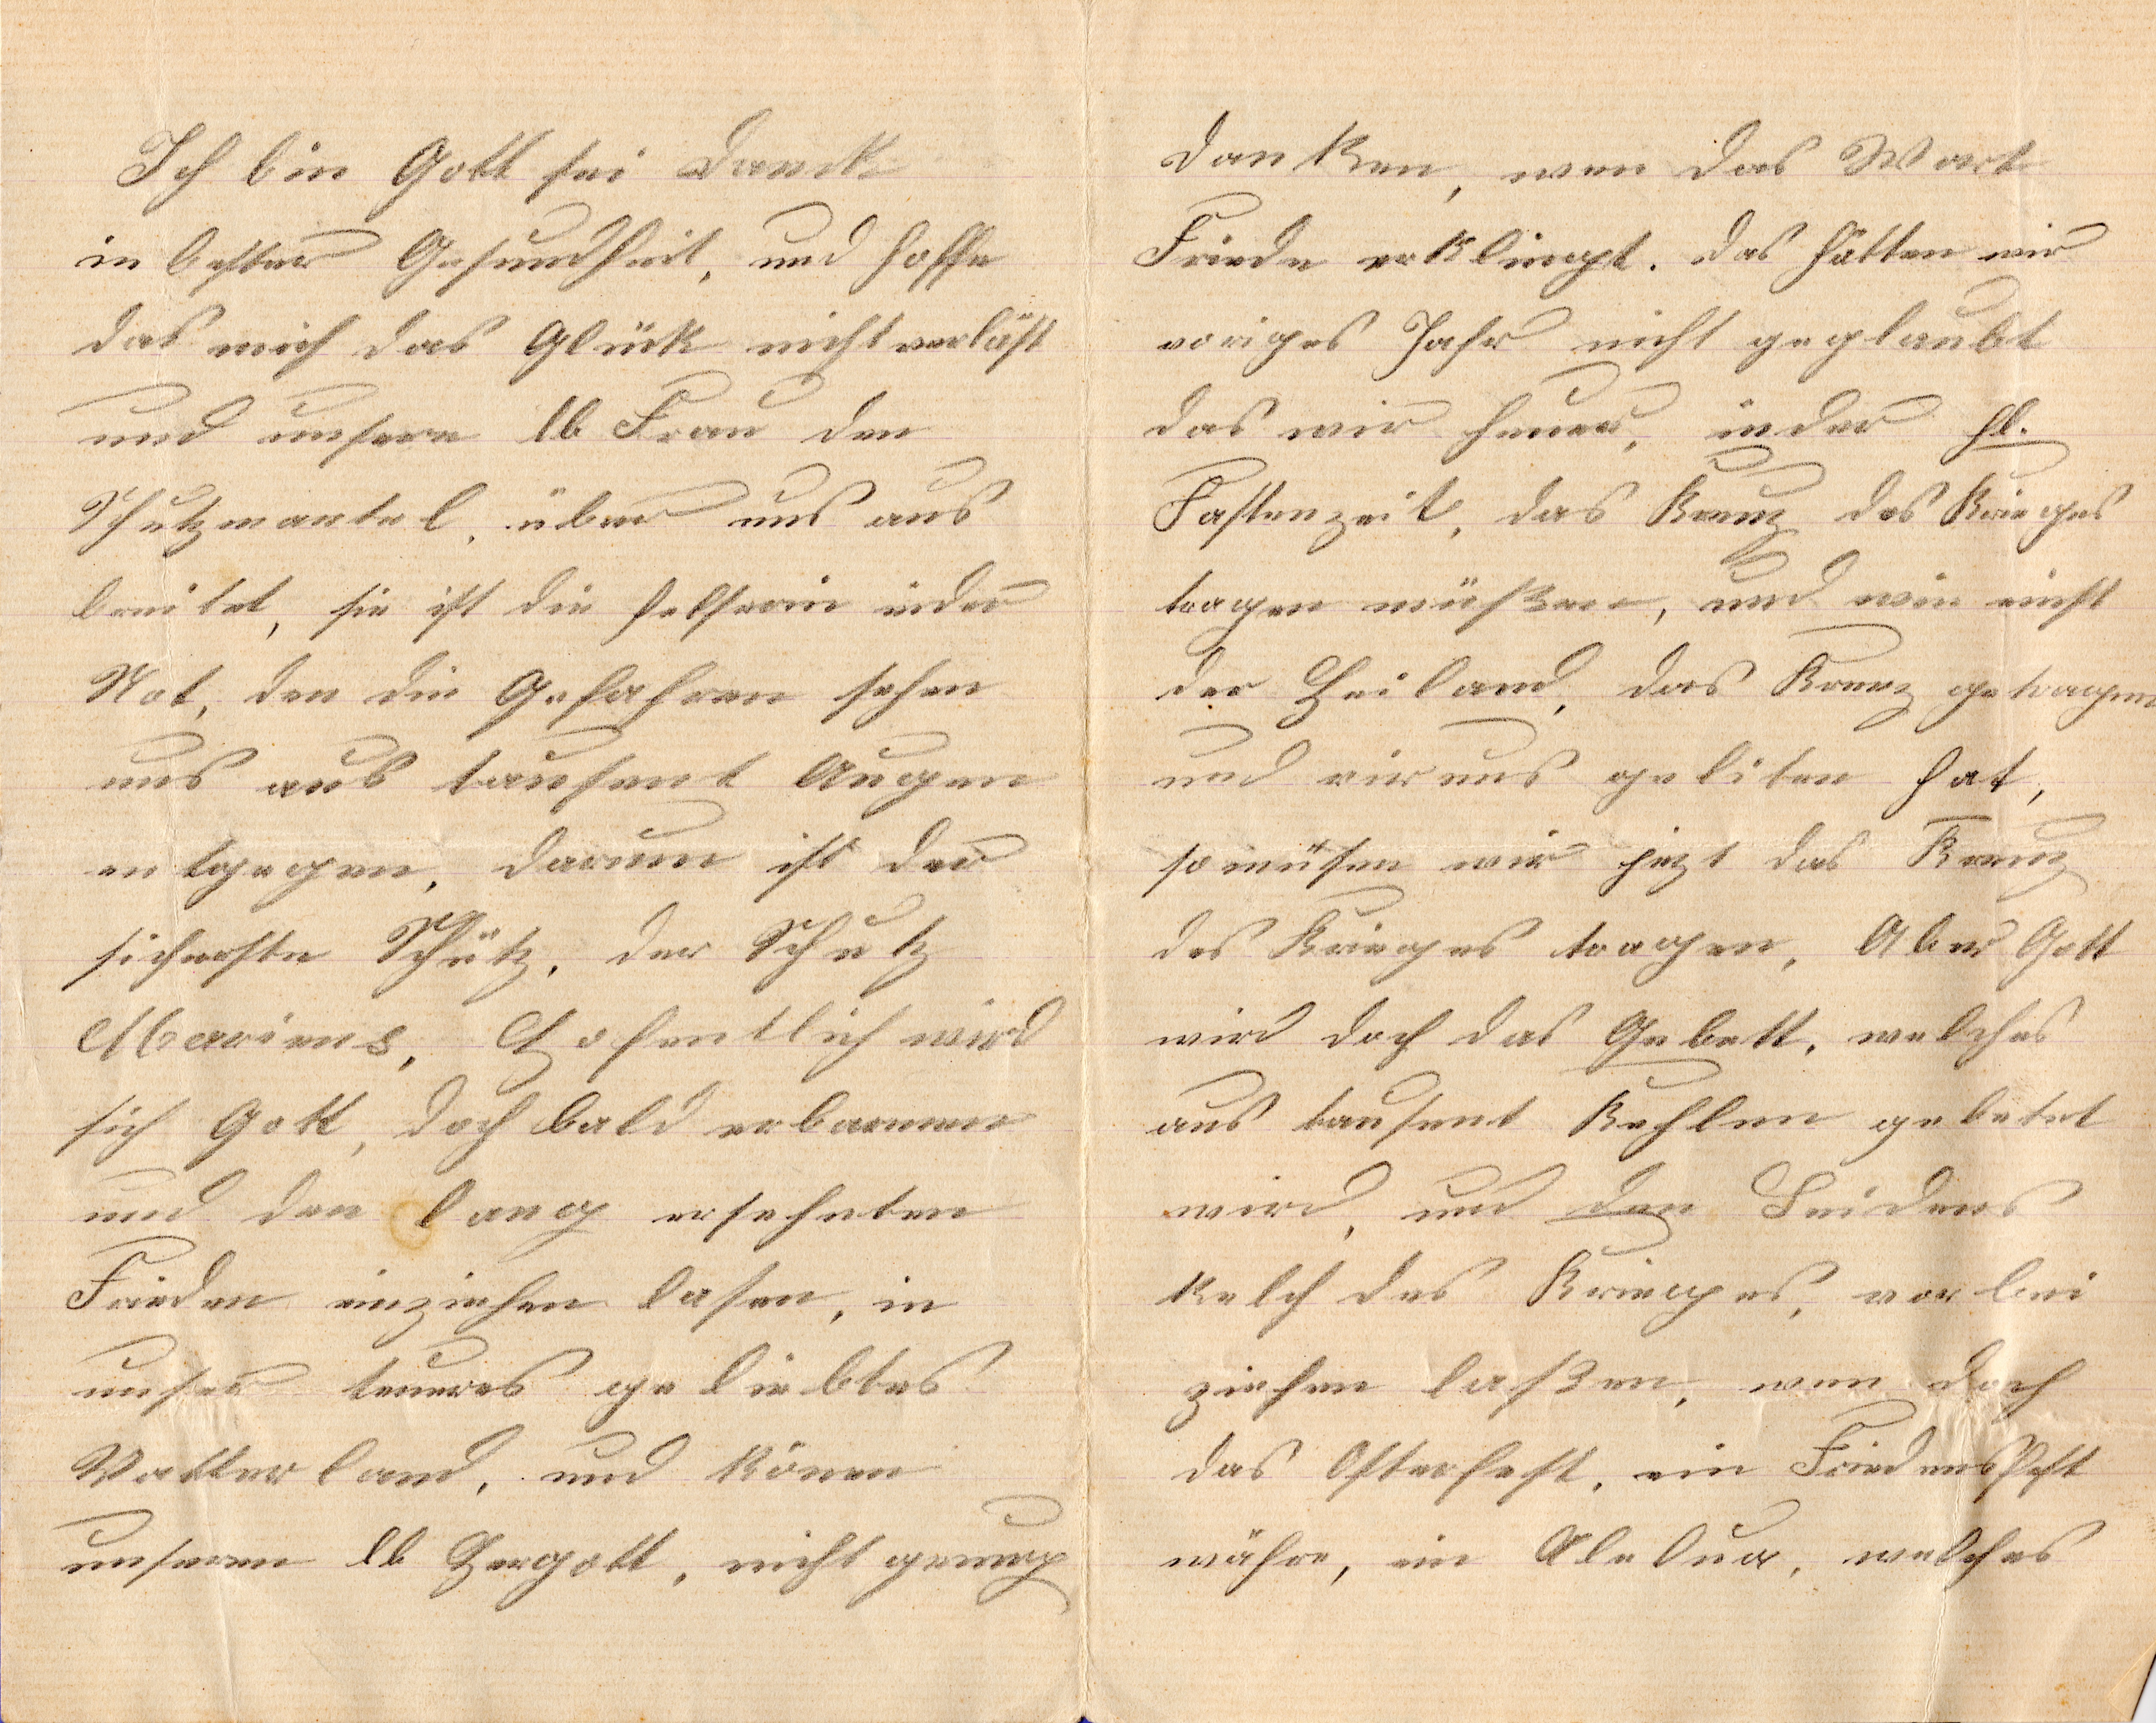 Ich bin Gott sei Danck
in bester Gesundheit, und hoffe
das mich das Glück nicht verläst
und unsere lb Frau den
Schutzmantel, über uns aus
breitet, sie ist die Helferin inder
Not, den die Gefahren sehen
uns aus tausent Augen
entgegen, darum ist der
sicherste Schutz, der Schutz
Mariens, Hofentlich wird
sich Gott, doch bald erbarmen
und den lang ersehnten
Frieden einziehen lasen, in
unser teueres geliebtes
Vatterland, und könen
unseren lb Hergott, nicht genug
danken, wen das Wort
Friede erklingt. das hätten wir
voriges Jahr nicht geglaubt
das wir heuer, inder hl.
Fastenzeit, das Kreuz des Krieges
tragen müßen, und wie einst
der Heiland, das Kreuz getragen
und vir uns geliten hat,
so müsen wir jezt das Kreuz
des Krieges tragen, Aber Gott
wird doch das Gebett, welches
aus tausent Kehlen gebetet
wird, und den Leidens
kelch des Krieges, vorbei
ziehen laßen, wen doch
das Osterfest, ein Friedensfest
währe, ein Aleluja, welches